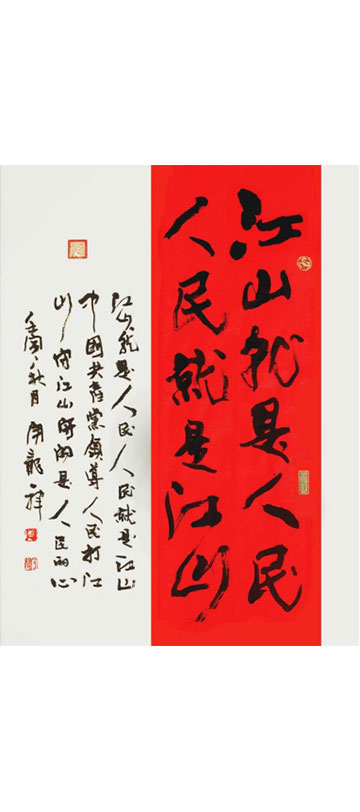 江山就是人民
人民就是江山
江山就是人民人民就是江山
中國共產黨領導人民打江
山守江山守的是人民的心
壬寅秋月